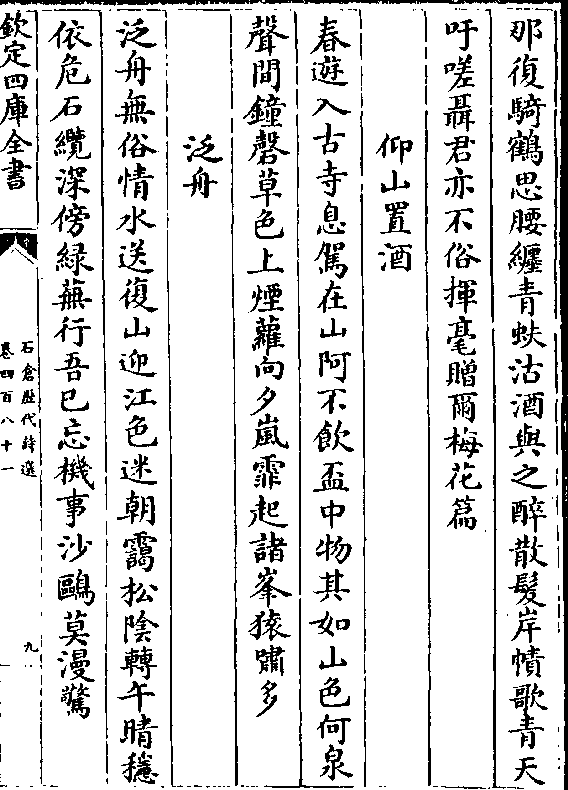 那復騎鶴思腰纏青蚨沽酒與之醉散髮岸幘歌青天
吁嗟聶君亦不俗揮毫贈爾梅花篇
仰山置酒
春遊入古寺息駕在山阿不飲盃中物其如山色何泉
聲間鐘磬草色上煙蘿向夕嵐霏起諸峯猿嘯多
泛舟
泛舟無俗情水送復山迎江色迷朝靄松陰轉午晴穩
依危石纜深傍緑蕪行吾已忘機事沙鷗莫漫驚
欽定四庫全書
石倉歴代詩選
卷四百八十一
九